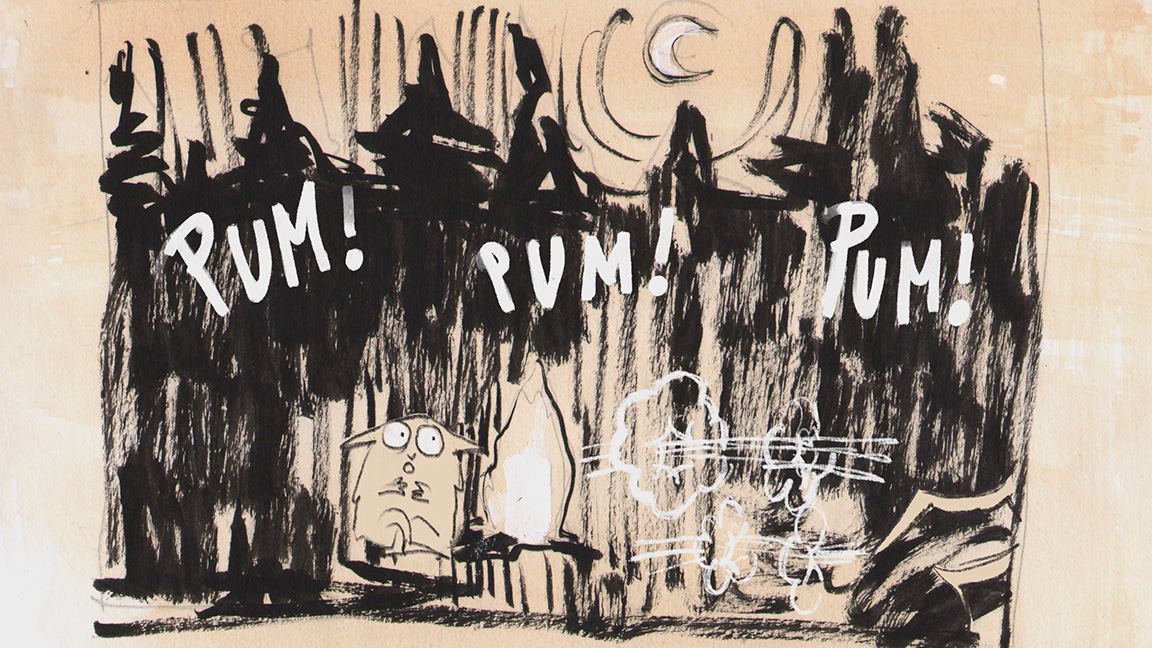 PUM! PUM! PUM!